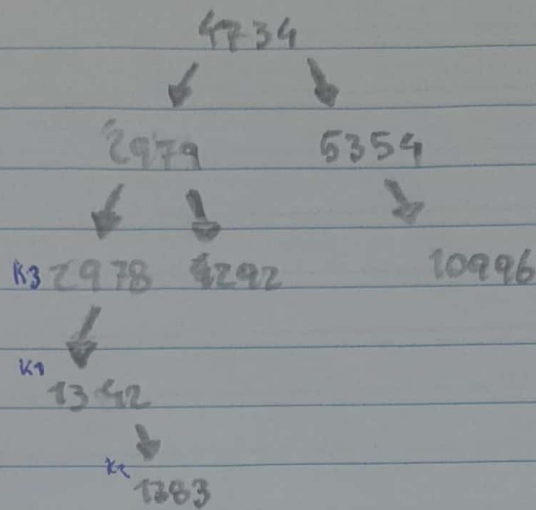 4734
2979 5354
K3 2978 4292 10996
K1
1342
K2
1783